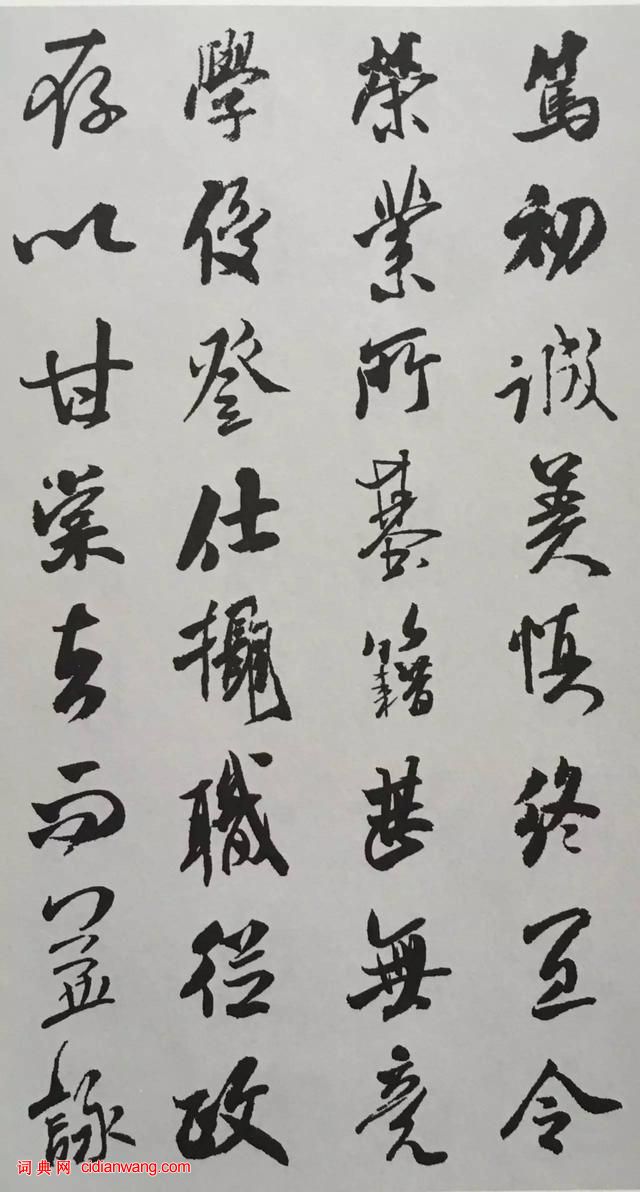 篤初誠美慎終宜令
榮業所基籍甚無竟
學優登仕攝職從政
存以甘棠去而益詠
词典网 cidianwang.com